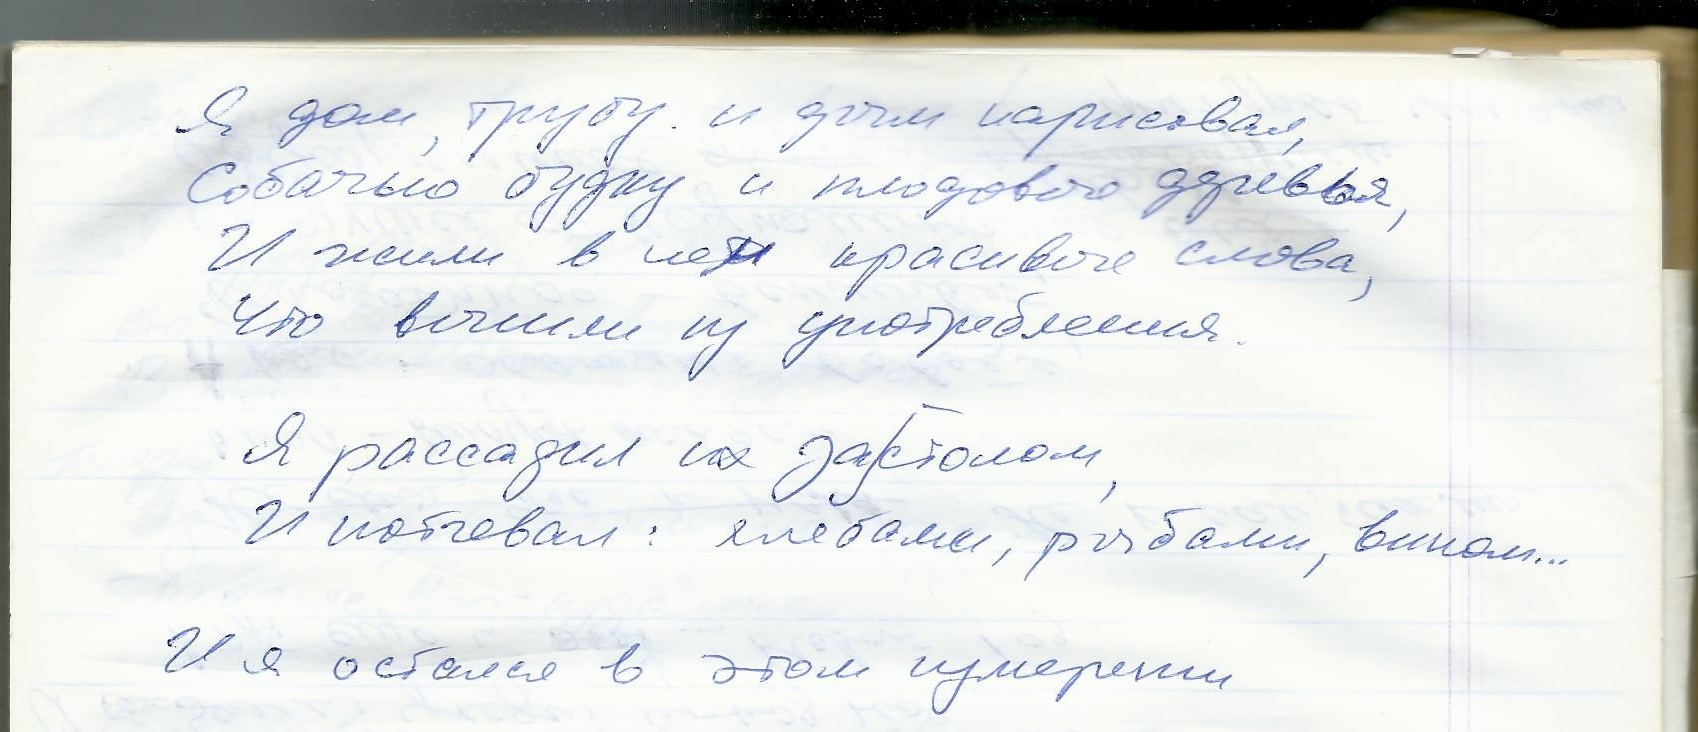 Я дом, трубу и дым нарисовал,
Собачью будку и плодовые деревья,
И жили в нём красивые слова,
Что вышли из употребления.
Я рассадил их за столом,
И потчевал: хлебами, рыбами, вином...
И я остался в этом измерении